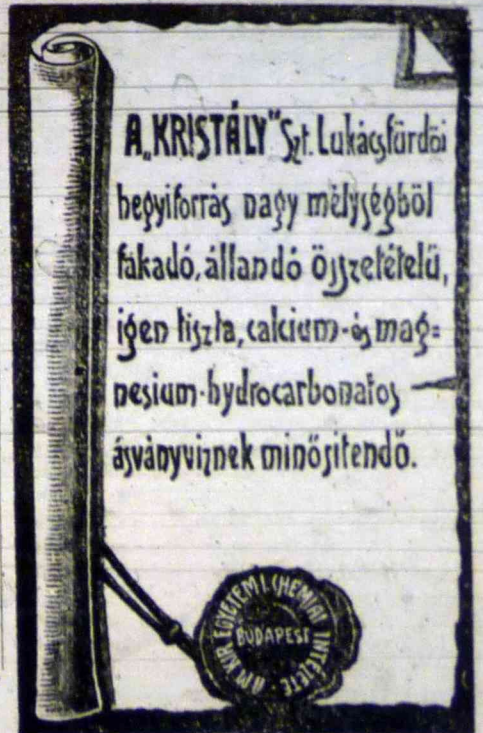 A „KRISTÁLY" Szt. Lukácsfürdöi
hegyiforrás nagy mélységböl
fakadó, állandó összetételü,
igen tiszta, calcium- és mag=
nesium-hydrocarbonatos
ásványviznek minősitendő.
A M. KIR. EGYETEM I. CHEMIAI INTÉZETE
BUDAPEST